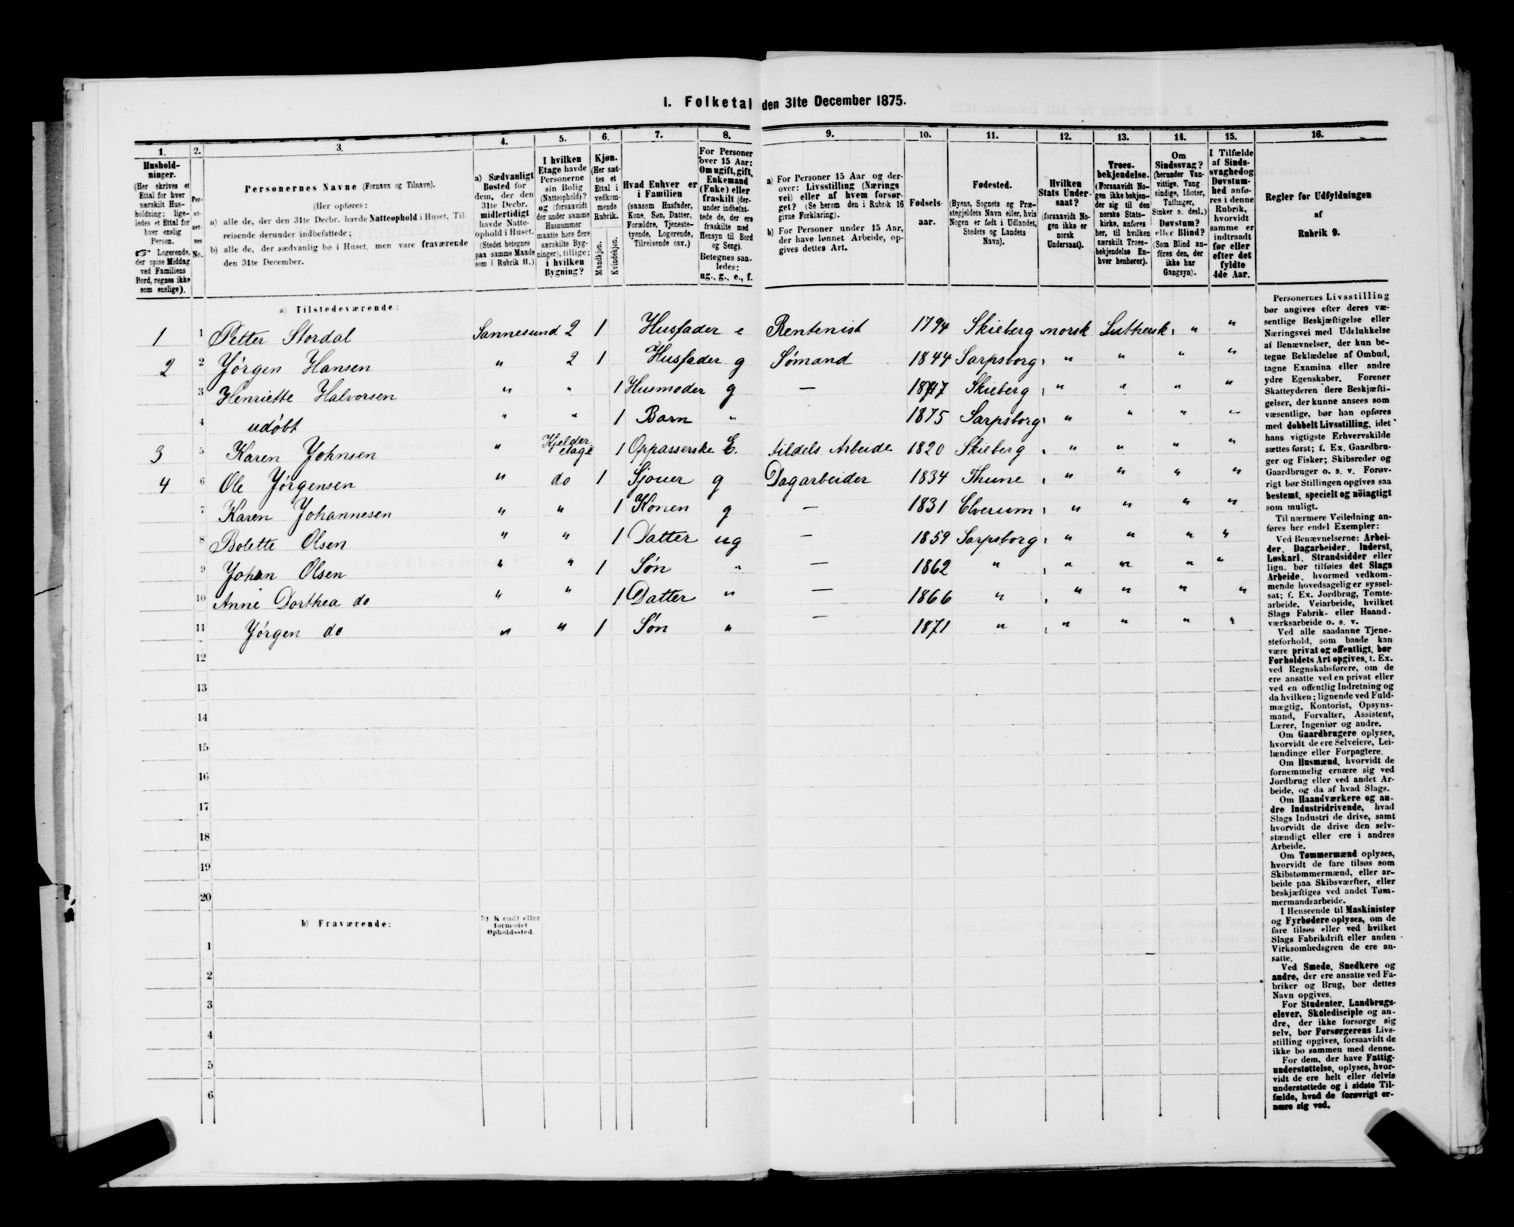 1. Folketal den 31te December 1875.
1. 2. 3. 4. 5. 6. 7. 8. 9. 10. 11. 12. 13. 14. 15. 16.
Hushold-
ninger.
(Her skrives et
Ettal for hver
særskilt Hus-
holdning; lige-
ledes et Ettal for
hver enslig
Person.
☞ Logerende,
der spise Middag
ved Familiens
Bord, regnes ikke
som enslige).
Personernes Navne (Fornavn og Tilnavn).
(Her opføres:
a) alle de, der den 31te Decbr. havde Natteophold i Huset, Til-
reisende derunder indbefattede;
b) alle de, der sædvanlig bo i Huset, men vare fraværende
den 31te December.
a) Sædvanligt
Bosted for
dem, der den
31te Decbr.
midlertidigt
havde Natte-
ophold i Huset.
(Stedet betegnes
paa samme Maade
som i Rubrik 11.)
I hvilken
Etage havde
Personerne
sin Bolig
(Natteophold)?
og (forsaavidt
der under samme
Husnummer
maatte høre flere
særskilte Byg-
ninger), tillige:
i hvilken
Bygning?
Kjøn.
(Her sæt-
tes et
Ettal i
vedkom-
mende
Rubrik.
Mandkjøn. Kvindekjøn.
Hvad Enhver er
i Familien
(saasom Husfader,
Kone, Søn, Datter,
Forældre, Tjeneste-
tyende, Logerende,
Tilreisende osv.)
For Personer
over 15 Aar:
Om ugift, gift,
Enkemand
(Enke) eller
fraskilt (der-
under indbefat-
tede de, der ere
fraskilte med
Hensyn til Bord
og Seng).
Betegnes saa-
ledes:
ug., g., e., f.
a) For Personer 15 Aar og der-
over: Livsstilling (Nærings
vei) eller af hvem forsør-
get? (Se herom den i Rubrik 16
givne Forklaring).
b) For Personer under 15 Aar,
der have lønnet Arbeide, op-
gives dettes Art.
Fødsels-
aar.
Fødested.
(Byens, Sognets og Præ-
stegjeldets Navn eller, hvis
Nogen er født i Udlandet,
Stedets og Landets
Navn).
Hvilken
Stats Under-
saat?
(forsaavidt No-
gen ikke er
norsk
Undersaat).
Troes-
bekjendelse.
(Forsaavidt No-
gen ikke bekjen-
der sig til den
norske Stats-
kirke, anføres
her, til hvilken
særskilt Troes-
bekjendelse En-
hver henhører).
Om
Sindssvag?
(herunder Van-
vittige, Tung
sindige, Idioter,
Tullinger,
Sinker o. desl.)
Døvstum?
eller Blind?
(Som Blind an-
føres den, der
ikke har
Gangsyn).
I Tilfælde
af Sinds-
svaghed og
Døvstum-
hed anfø-
res i denne
Rubrik,
hvorvidt
samme er
indtraadt
før eller
efter det
fyldte
4de Aar.
Regler for Udfyldningen
af
Rubrik 9.
a) Tilstedeværende:
1 1 Petter Stordal Sannesund 2 1 Husfader e Rentenist 1794 Skieberg norsk Luthersk „ „
2 2 Jørgen Hansen „ 2 1 Husfader g Sømand 1844 Sarpsborg „ „ „ „
3 Henriette Halvorsen „ „ 1 Husmoder g — 1847 Skieberg „ „ „ „
4 udøbt „ „ 1 Barn „ 1875 Sarpsborg „ „ „ „
3 5 Karen Johnsen „ Kjelder etage 1 Oppasserske E. tildels Arbeide 1820 Skieberg „ „ „ „
4 6 Ole Jørgensen „ do 1 Sjouer g Dagarbeider 1834 Thune „ „ „ „
7 Karen Johannesen „ „ 1 Konen g — 1831 Elverum „ „ „ „
8 Bolette Olsen „ „ 1 Datter ug — 1859 Sarpsborg „ „ „ „
9 Johan Olsen „ „ 1 Søn „ — 1862 „ „ „ „ „
10 Anne Dorthea do „ „ 1 Datter „ — 1866 „ „ „ „ „
11 Jørgen do „ „ 1 Søn „ — 1871 „ „ „ „ „
12
13
14
15
16
17
18
19
20
b) Fraværende:
b) Kjendt eller
formodet
Opholdssted
1
2
3
4
5
6
Personernes Livsstilling
bør angives efter deres væ-
sentlige Beskjæftigelse eller
Næringsvei med Udelukkelse
af Benævnelser, der kun be-
tegne Beklædelse af Ombud,
tagne Examina eller andre
ydre Egenskaber. Forener
Skatteyderen flere Beskjæfti-
gelser, der kunne ansees som
væsentlige, bør han opføres
med dobbelt Livsstilling, idet
hans vigtigste Erhvervskilde
sættes først; f. Ex. Gaardbru-
ger og Fisker; Skibsreder og
Gaardbruger o. s. v. Forøv-
rigt bør Stillingen opgives saa
bestemt, specielt og nöiagtigt
som muligt.
Til nærmere Veiledning an-
føres her endel Exempler:
Ved Benævnelserne: Arbei-
der, Dagarbeider, Inderst,
Løskarl, Strandsidder eller
lign. bør tilføies det Slags
Arbeide, hvormed vedkom-
mende hovedsagelig er syssel-
sat; f. Ex. Jordbrug, Tomte-
arbeide, Veiarbeide, hvilket
Slags Fabrik- eller Haand-
værksarbeide o. s. v.
Ved alle saadanne Tjene-
steforhold, som baade kan
være privat og offentligt, bør
Forholdets Art opgives, t. Ex.
ved Regnskabsførere, om de
ere ansatte ved en privat eller
ved en offentlig Indretning og
da hvilken; lignende ved Fuld-
mægtig, Kontorist, Opsyns-
mand, Forvalter, Assistent,
Lærer, Ingeniør og andre.
Om Gaardbrugere oplyses,
hvorvidt de ere Selveiere, Lei-
lændinge eller Forpagtere.
Om Husmænd, hvorvidt de
fornemmelig ernære sig ved
Jordbrug eller ved andet Ar-
beide, og da af hvad Slags.
Om Haandværkere og an-
dre Industridrivende, hvad
Slags Industri de drive, samt
hvorvidt de drive den selv-
stændigt eller ere i andres
Arbeide.
Om Tømmermænd oplyses,
hvorvidt de fare tilsøs som
Skibstømmermænd, eller ar-
beide paa Skibsværfter, eller
beskjæftiges ved andet Tøm-
mermandsarbeide.
I Henseende til Maskinister
og Fyrbødere oplyses, om de
fare tilsøs eller ved hvilket
Slags Fabrikdrift eller anden
Virksomhedsgren de ere an-
satte.
Ved Smede, Snedkere og
andre, der ere ansatte ved Fa-
briker og Brug, bør dettes
Navn opgives.
For Studenter, Landbrugs-
elever, Skoledisciple og an-
dre, der ikke forsørge sig
selv, bør Forsørgerens Livs-
stilling opgives, forsaavidt de
ikke bo sammen med denne.
For dem, der have Fattig-
understøttelse, oplyses, hvor-
vidt de ere helt eller delvis
understøttede og i sidste Til-
fælde, hvad de forøvrigt er-
nære sig ved.